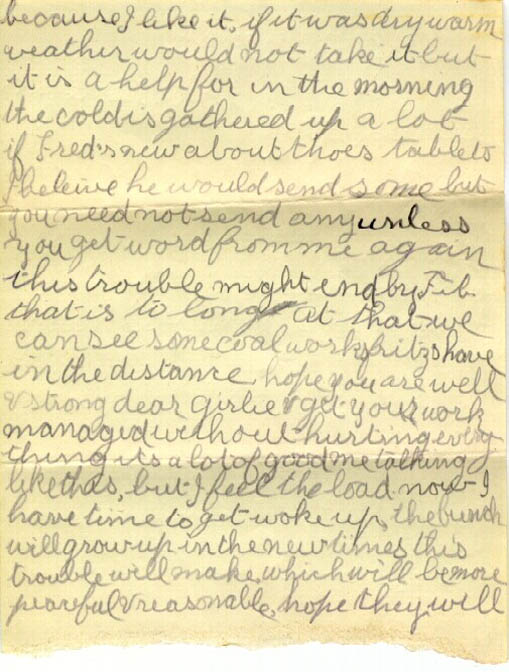 because I like it, if it was dry warm
weather would not take it but
it is a help for in the morning
the cold is gathered up a lot
if Fred snew about thoes tablets
I beleive he would send some but
you need not send any unless
you get word from me again
this trouble might end by Feb.
that is to long at that we
can see some coal works fritzs have
in the distance, hope you are well
& strong dear Girlie & get your work
managed without hurting every
thing its a lot of good me talking
like this, but I feel the load now I
have time to get woke up, the bunch
will grow up in the new times this
trouble will make, which will be more
peaceful & reasonable, hope they will